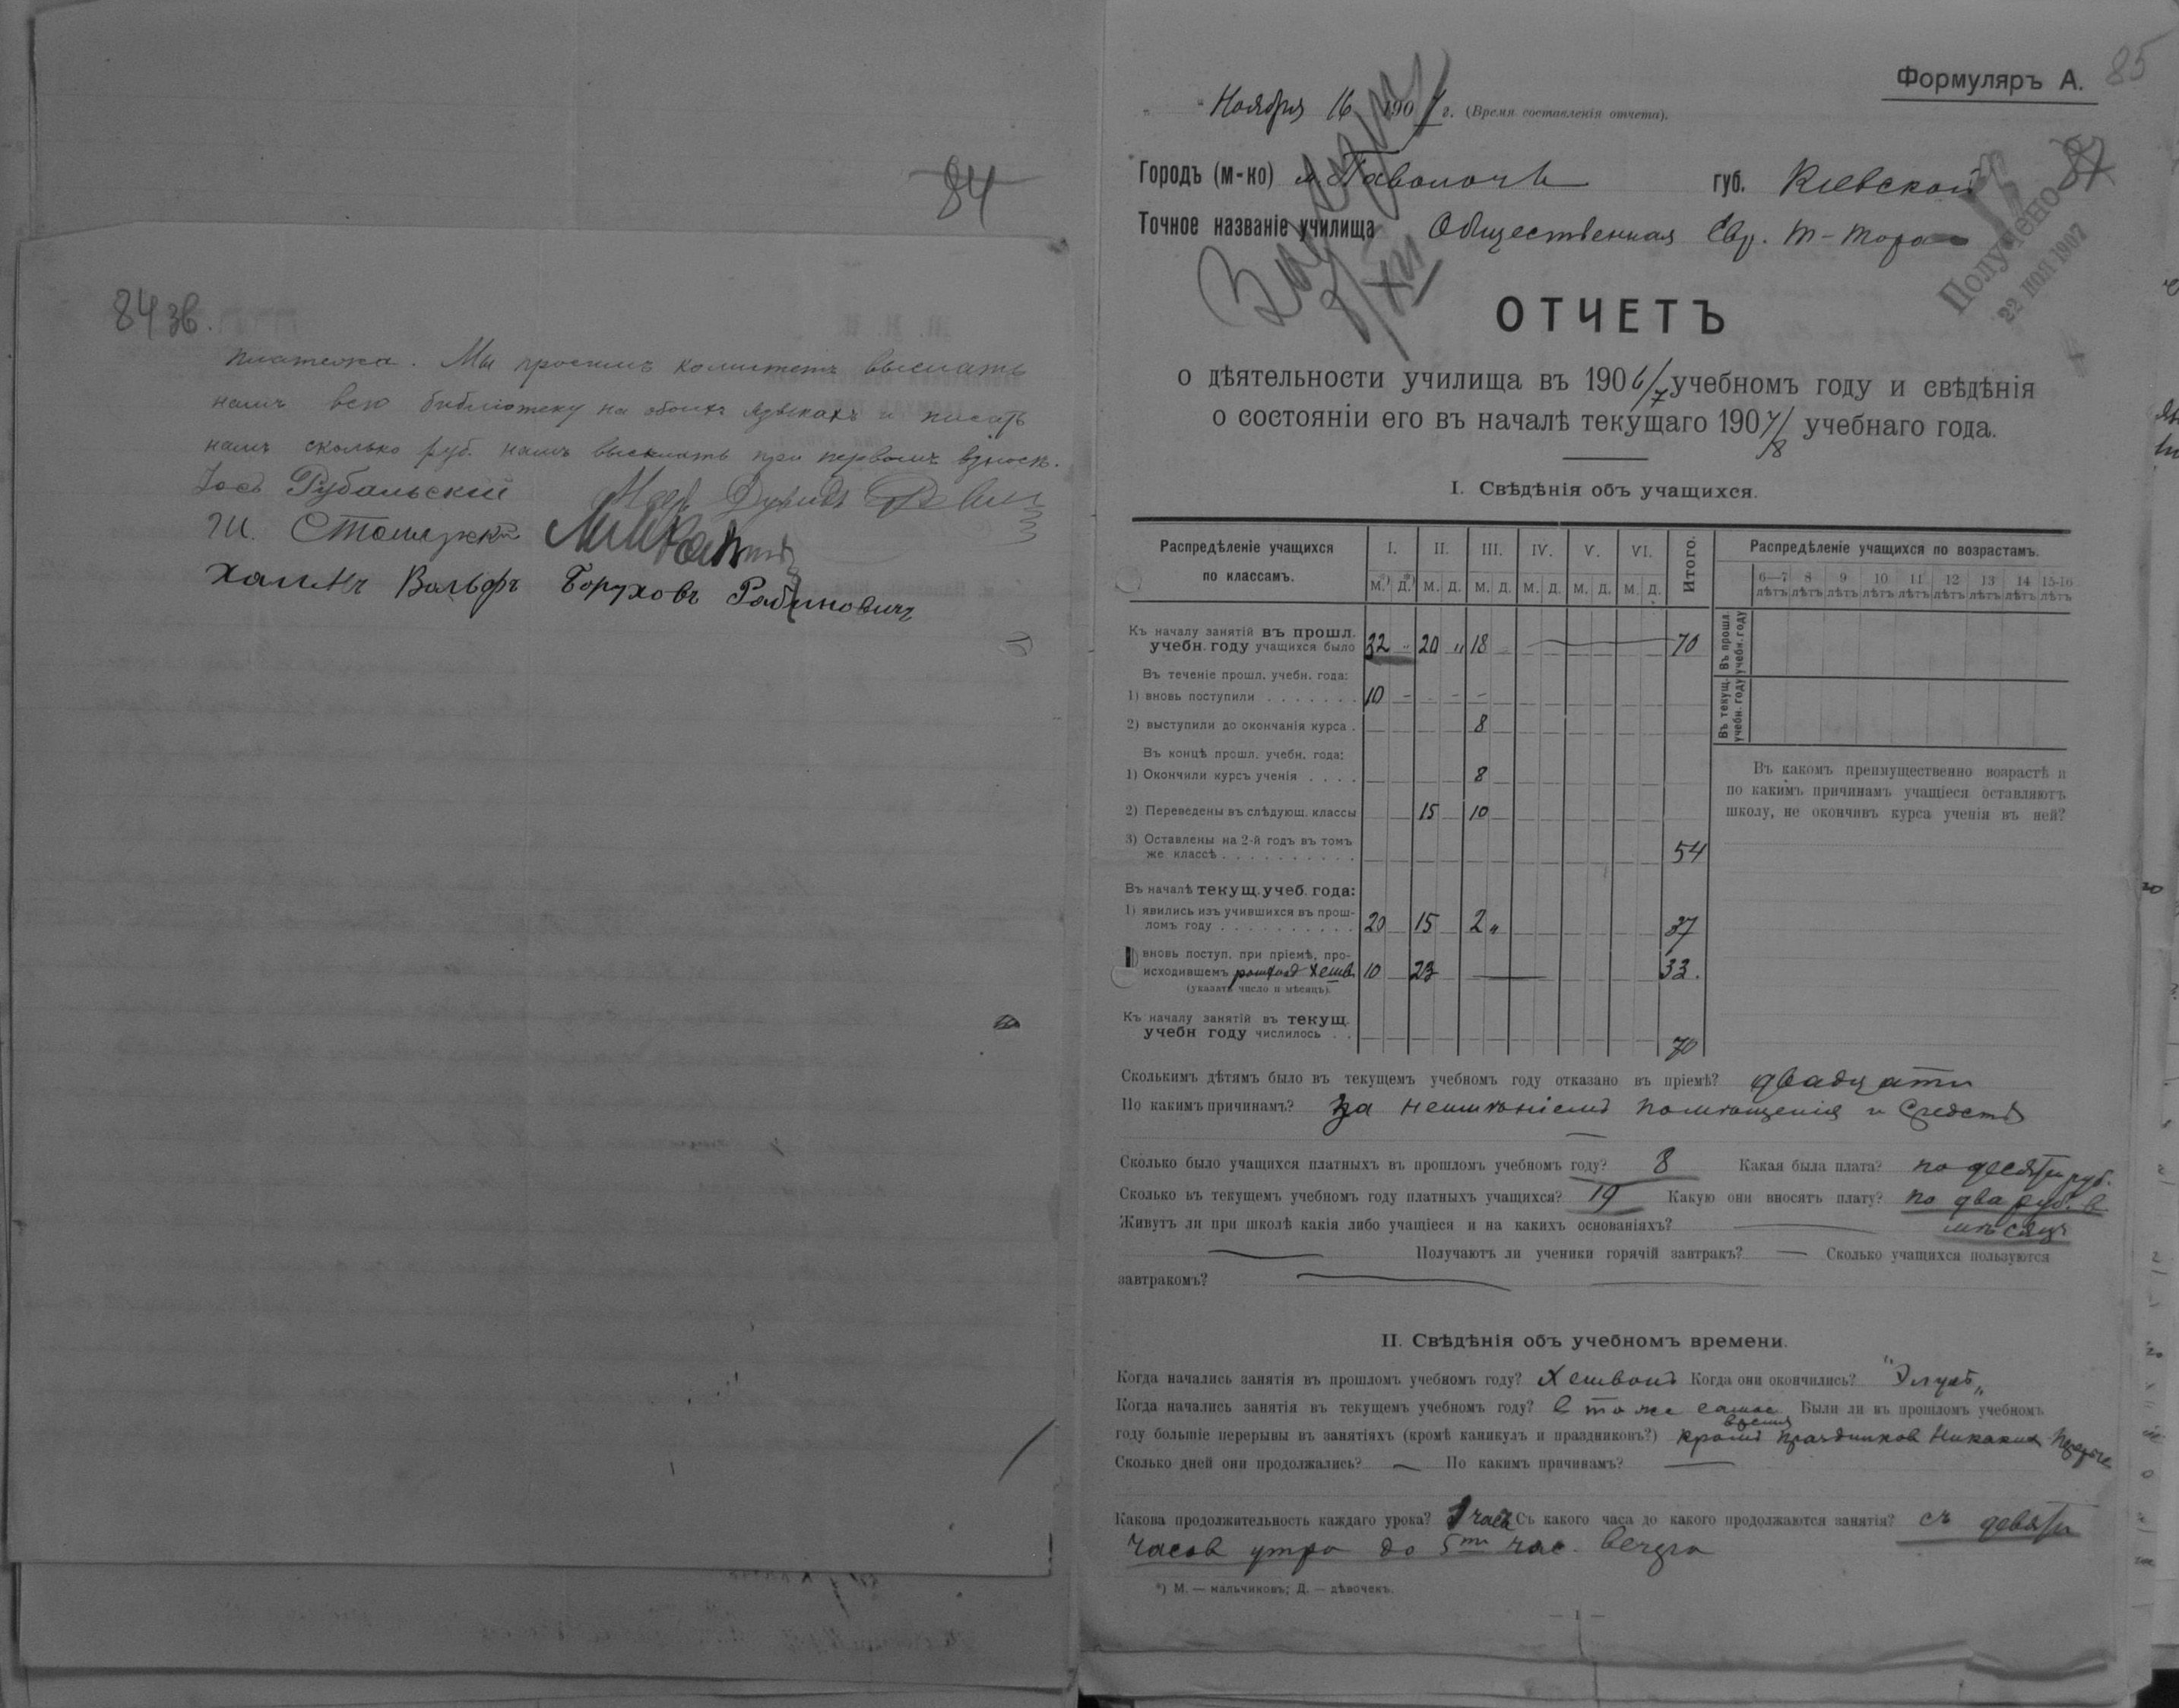 84
84 зв.
платежа. Мы просимъ комитетъ выслать
намъ всю библіотеку на обоихъ языкахъ и писать
намъ сколько руб. намъ выслать при первомъ взносѣ.
Іос. Рубальскій
Ш.
Хаимъ Вольфъ Боруховъ Рабиновичъ
85
Формуляръ А.
Ноября 16 1907 г. (Время составленія отчета).
87
Городъ (м-ко) м. Паволочь губ. Кіевской
Точное названіе училища Общественная Евр. Т-Тора
Получено
22 НОЯ 1907
8/XII
ОТЧЕТЪ
о дѣятельности училища въ 1906/7 учебномъ году и свѣдѣнія
о состояніи его въ началѣ текущаго 1907/8 учебнаго года.
I. Свѣдѣнія объ учащихся.
Распредѣленіе учащихся по классамъ. I. II. III. IV. V. VI. Итого.
м.*) д.*) м. д. м. д. м. д. м. д. м. д.
Распредѣленіе учащихся по возрастамъ.
6—7 лѣтъ 8 лѣтъ 9 лѣтъ 10 лѣтъ 11 лѣтъ 12 лѣтъ 13 лѣтъ 14 лѣтъ 15-16 лѣтъ
Въ прошл. учебн. году
Въ текущ. учебн. году
Къ началу занятій въ прошл.
учебн. году учащихся было 32 „ 20 „ 18 — 70
Въ теченіе прошл. учебн. года:
1) вновь поступили . . . . . . . 10 — — —
2) выступили до окончанія курса . 8
Въ концѣ прошл. учебн. года:
1) Окончили курсъ ученія . . . . 8
2) Переведены въ слѣдующ. классы 15 10
3) Оставлены на 2-й годъ въ томъ
же классѣ . . . . . . . . . . 54
Въ началѣ текущ. учеб. года:
1) явились изъ учившихся въ прош-
ломъ году . . . . . . . . . . 20 15 2 „ 37
вновь поступ. при пріемѣ, про-
исходившемъ Хешв. 10 23 — 33.
(указать число и мѣсяцъ).
Къ началу занятій въ текущ.
учебн году числилось . . 70
Въ какомъ преимущественно возрастѣ и
по какимъ причинамъ учащіеся оставляютъ
школу, не окончивъ курса ученія въ ней?
Сколькимъ дѣтямъ было въ текущемъ учебномъ году отказано въ пріемѣ? двадцати
По какимъ причинамъ? За неимѣніемъ помѣщенія и средствъ
Сколько было учащихся платныхъ въ прошломъ учебномъ году? 8 Какая была плата? по десяти руб.
Сколько въ текущемъ учебномъ году платныхъ учащихся? 19 Какую они вносятъ плату? по два руб. в
мѣсяцъ
Живутъ ли при школѣ какія либо учащіеся и на какихъ основаніяхъ? —
— Получаютъ ли ученики горячій завтракъ? — Сколько учащихся пользуются
завтракомъ? —
II. Свѣдѣнія объ учебномъ времени.
Когда начались занятія въ прошломъ учебномъ году? Хешвонъ Когда они окончились? „Элулъ„
Когда начались занятія въ текущемъ учебномъ году? в то же самое время Были ли въ прошломъ учебномъ
году большіе перерывы въ занятіяхъ (кромѣ каникулъ и праздниковъ?) кромѣ праздников никаких
Сколько дней они продолжались? — По какимъ причинамъ? —
Какова продолжительность каждаго урока? 1 часъ Съ какого часа до какого продолжаются занятія? съ девяти
часов утра до 5ти час. вечера
*) М. — мальчиковъ; Д. — дѣвочекъ.
— 1 —